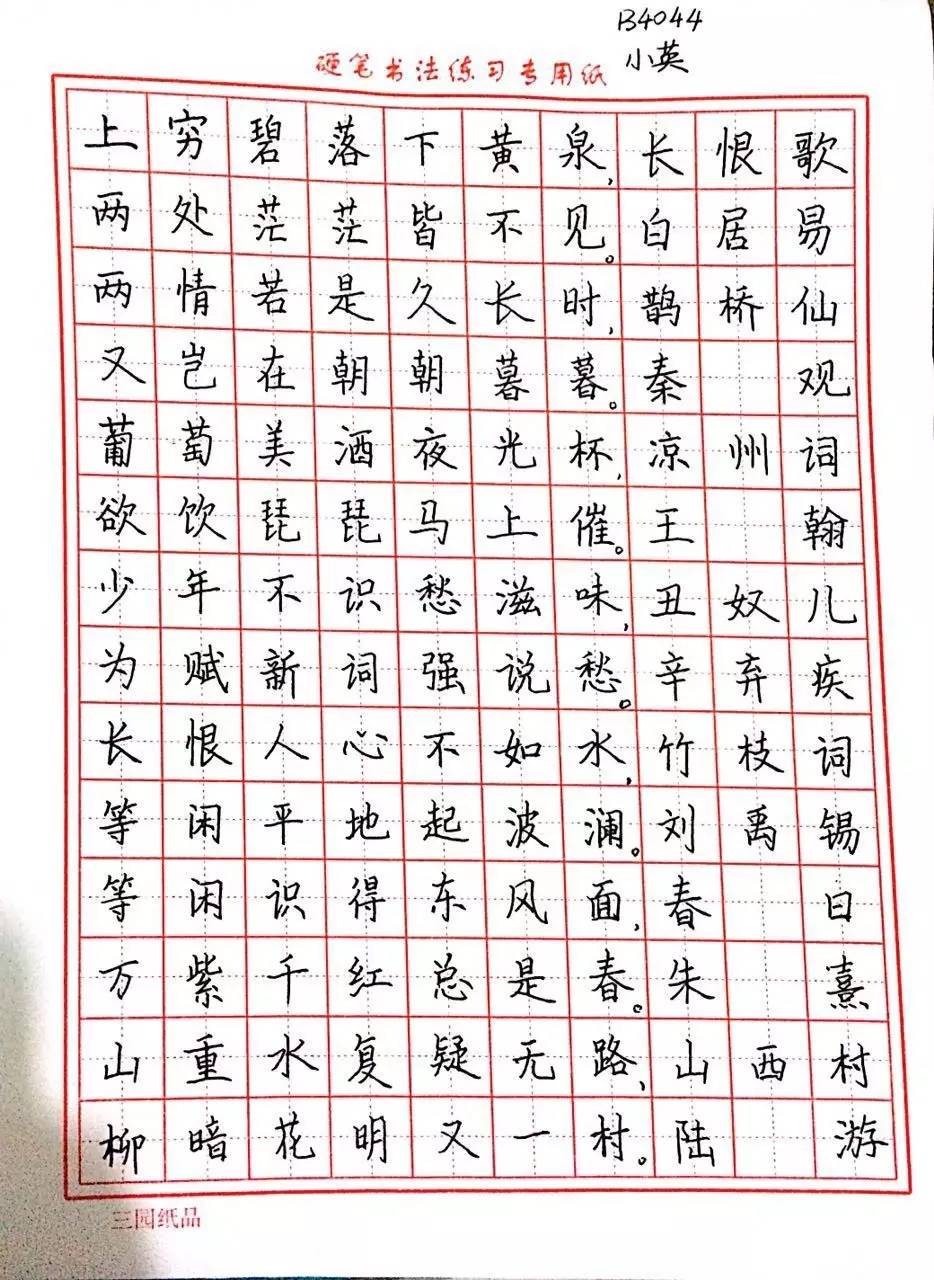 B4044
小英
硬笔书法练习专用纸
上穷碧落下黄泉,长恨歌
两处茫茫皆不见。白居易
两情若是久长时,鹊桥仙
又岂在朝朝暮暮。秦 观
葡萄美酒夜光杯,凉州词
欲饮琵琵马上催。王 翰
少年不识愁滋味,丑奴儿
为赋新词强说愁。辛弃疾
长恨人心不如水,竹枝词
等闲平地起波澜。刘禹锡
等闲识得东风面,春 日
万紫千红总是春。朱 熹
山重水复疑无路,山西村
柳暗花明又一村。陆 游
三园纸品